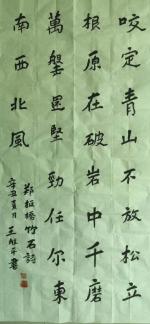 咬定青山不放松立
根原在破岩中千磨
萬擊還堅勁任尔東
南西北風
郑板橋竹石詩
辛丑 月 王 書